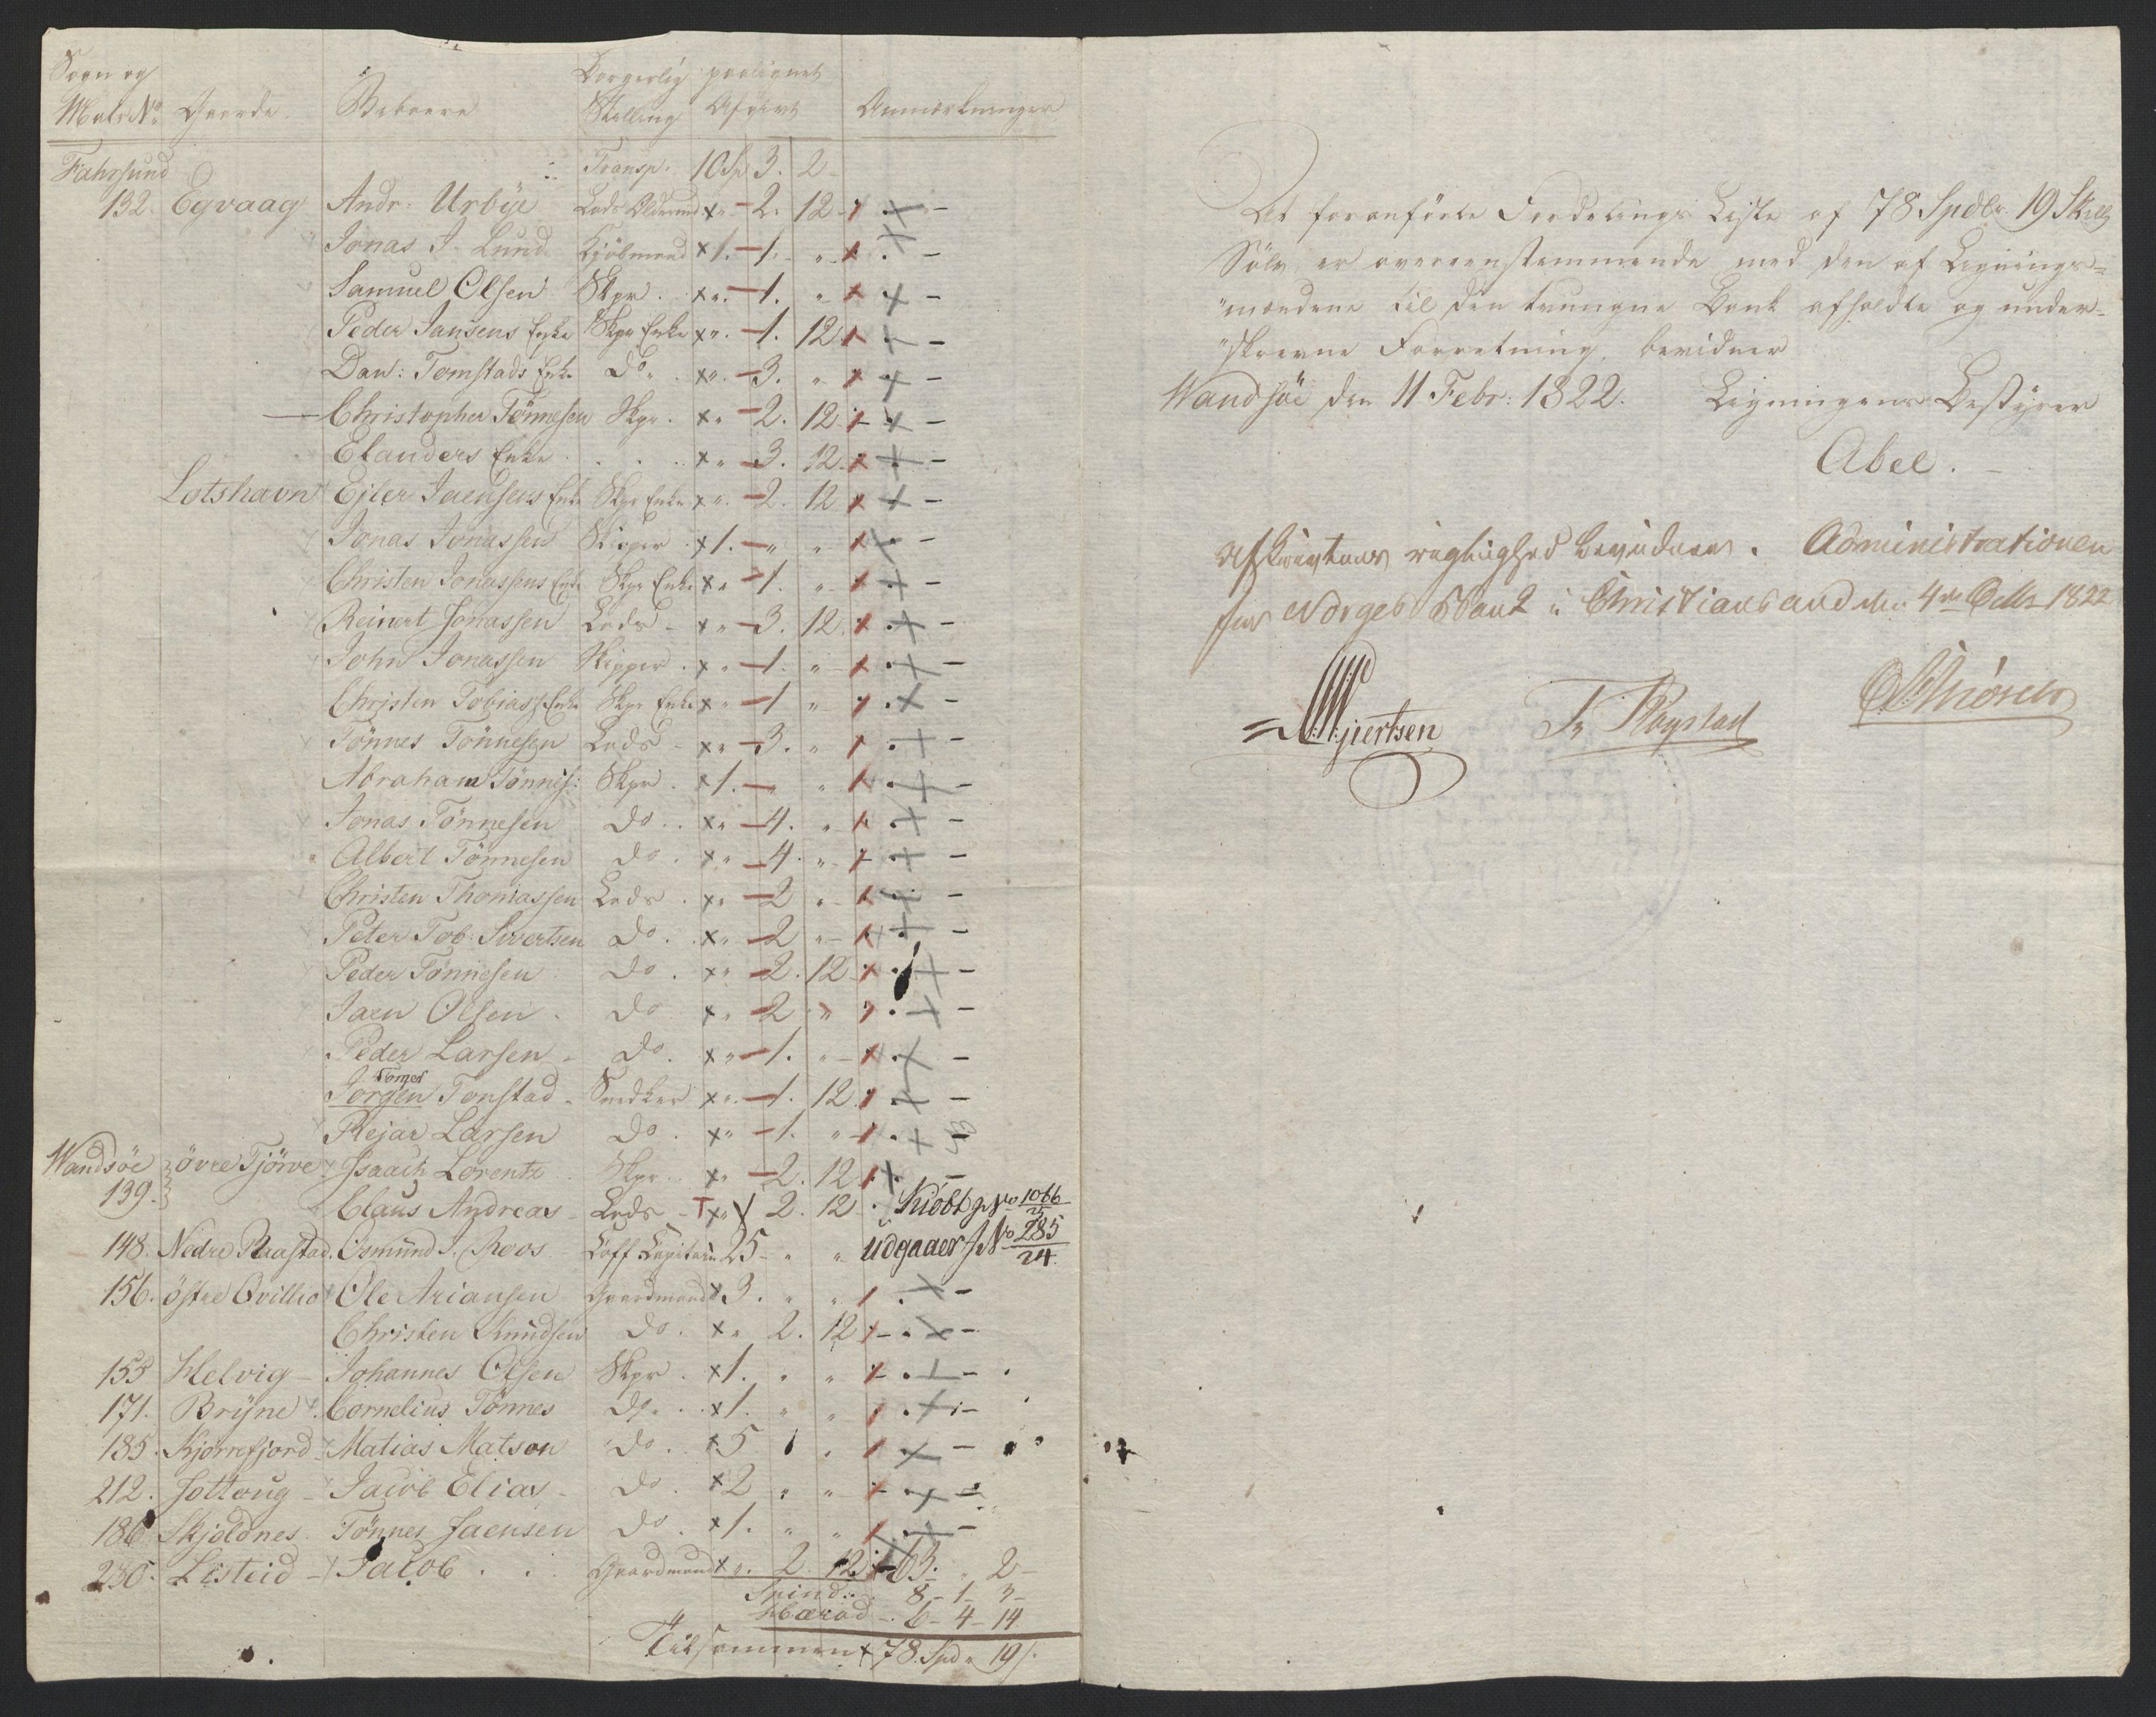 Sogn og Borgerlig paalignet
Matr No Gaarde. Beboere Stilling Afgivt Anmærkninger
Fahrsund Transp. 10 Sp 3. 2
132. Egvaag Andr: Urbÿe Lods Oldermd x " - 2. 12
Jonas J. Lund Kjöbmand x 1. - 1. "
Samuel Olsen Skpr. x ". - 1. "
Peder Jansens Enke Skpr Enke x ". - 1. 12
Dan: Tomstads Enke Do. x ". - 3. "
Christopher Tönnesen Skpr. x " - 2. 12
Elanders Enke . . . x " - 3. 12
Lotshavn Ejler Jaensens Enke Skpr Enke x ". - 2. 12
Jonas Jonassen Skipper x 1. - " "
Christen Jonassens Enke Skpr Enke x " - 1. "
Reinert Jonassen Lods - x " - 3. 12
John Jonassen Skipper . x " - 1. "
Christen Tobiass. Enke Skpr Enke x " - 1 "
Tönnes Tönnesen Lods - x " - 3. "
Abraham Tönnes: Skpr. x 1. - " "
Jonas Tönnesen Do . x " - 4. "
Albert Tönnesen Do . x " - 4. "
Christen Thomassen Lods . x " - 2 "
Peter Tob. Sivertsen Do . x " - 2 "
Peder Tönnesen Do . x " - 2. 12
Jaen Olsen . Do x " - 2 "
Peder Larsen - Do. x " - 1. "
Tomes
Jorgen Tonstad - Snedker x " - 1. 12
Rejar Larsen Do . x " - 1. "
Wandsöe övre Tjörve Isaach Lorentz Skpr - x " - 2. 12
139. Claus Andreas - Lods - T x " 2. 12 Kiöbt J No 1066/25
148. Nedre Raastad. Osmund J. Roos Coff Capitain 25 - " " Udgaaer J No 285/24
156. östre Qvillio Ole Ariansen Gaardmand x 3. " "
Christen Knudsen Do . x " 2. 12
155 Helvig - Johannes Olsen Skpr . x 1. " "
171. Brÿne Cornelius Tönnes Do . x 1. " "
185. Kjorrefjord - Matias Matson Do . x 5 " "
212. Jottoug - Jacob Elias - Do . x 2 " "
186 Skjoldnes Tönnes Jaensen Do . x 1. " "
230. Listeid - Jacob . . Gaardmand x ". 2. 12 63. " 2 -
Spind: 8 - 1 - 3 -
Hærad - 6 - 4 - 14
Tilsammen x 78. Spd " 19 s.
Det foranförte Fordelings Liste af 78 Spdlr. 19 Skill
Sölv er overeenstemmende med den af Lignings=
"mændene til den tvungne Bank afholdte og under=
"skrevne Forretning, bevidner
Wandsöe den 11 Febr: 1822. Ligningens Bestÿrer
Abel.
Afskriftens rigtighed bevidner. Administrationen
for Norges Bank i Christiansand den 4de Octbr 1822
Gjertsen